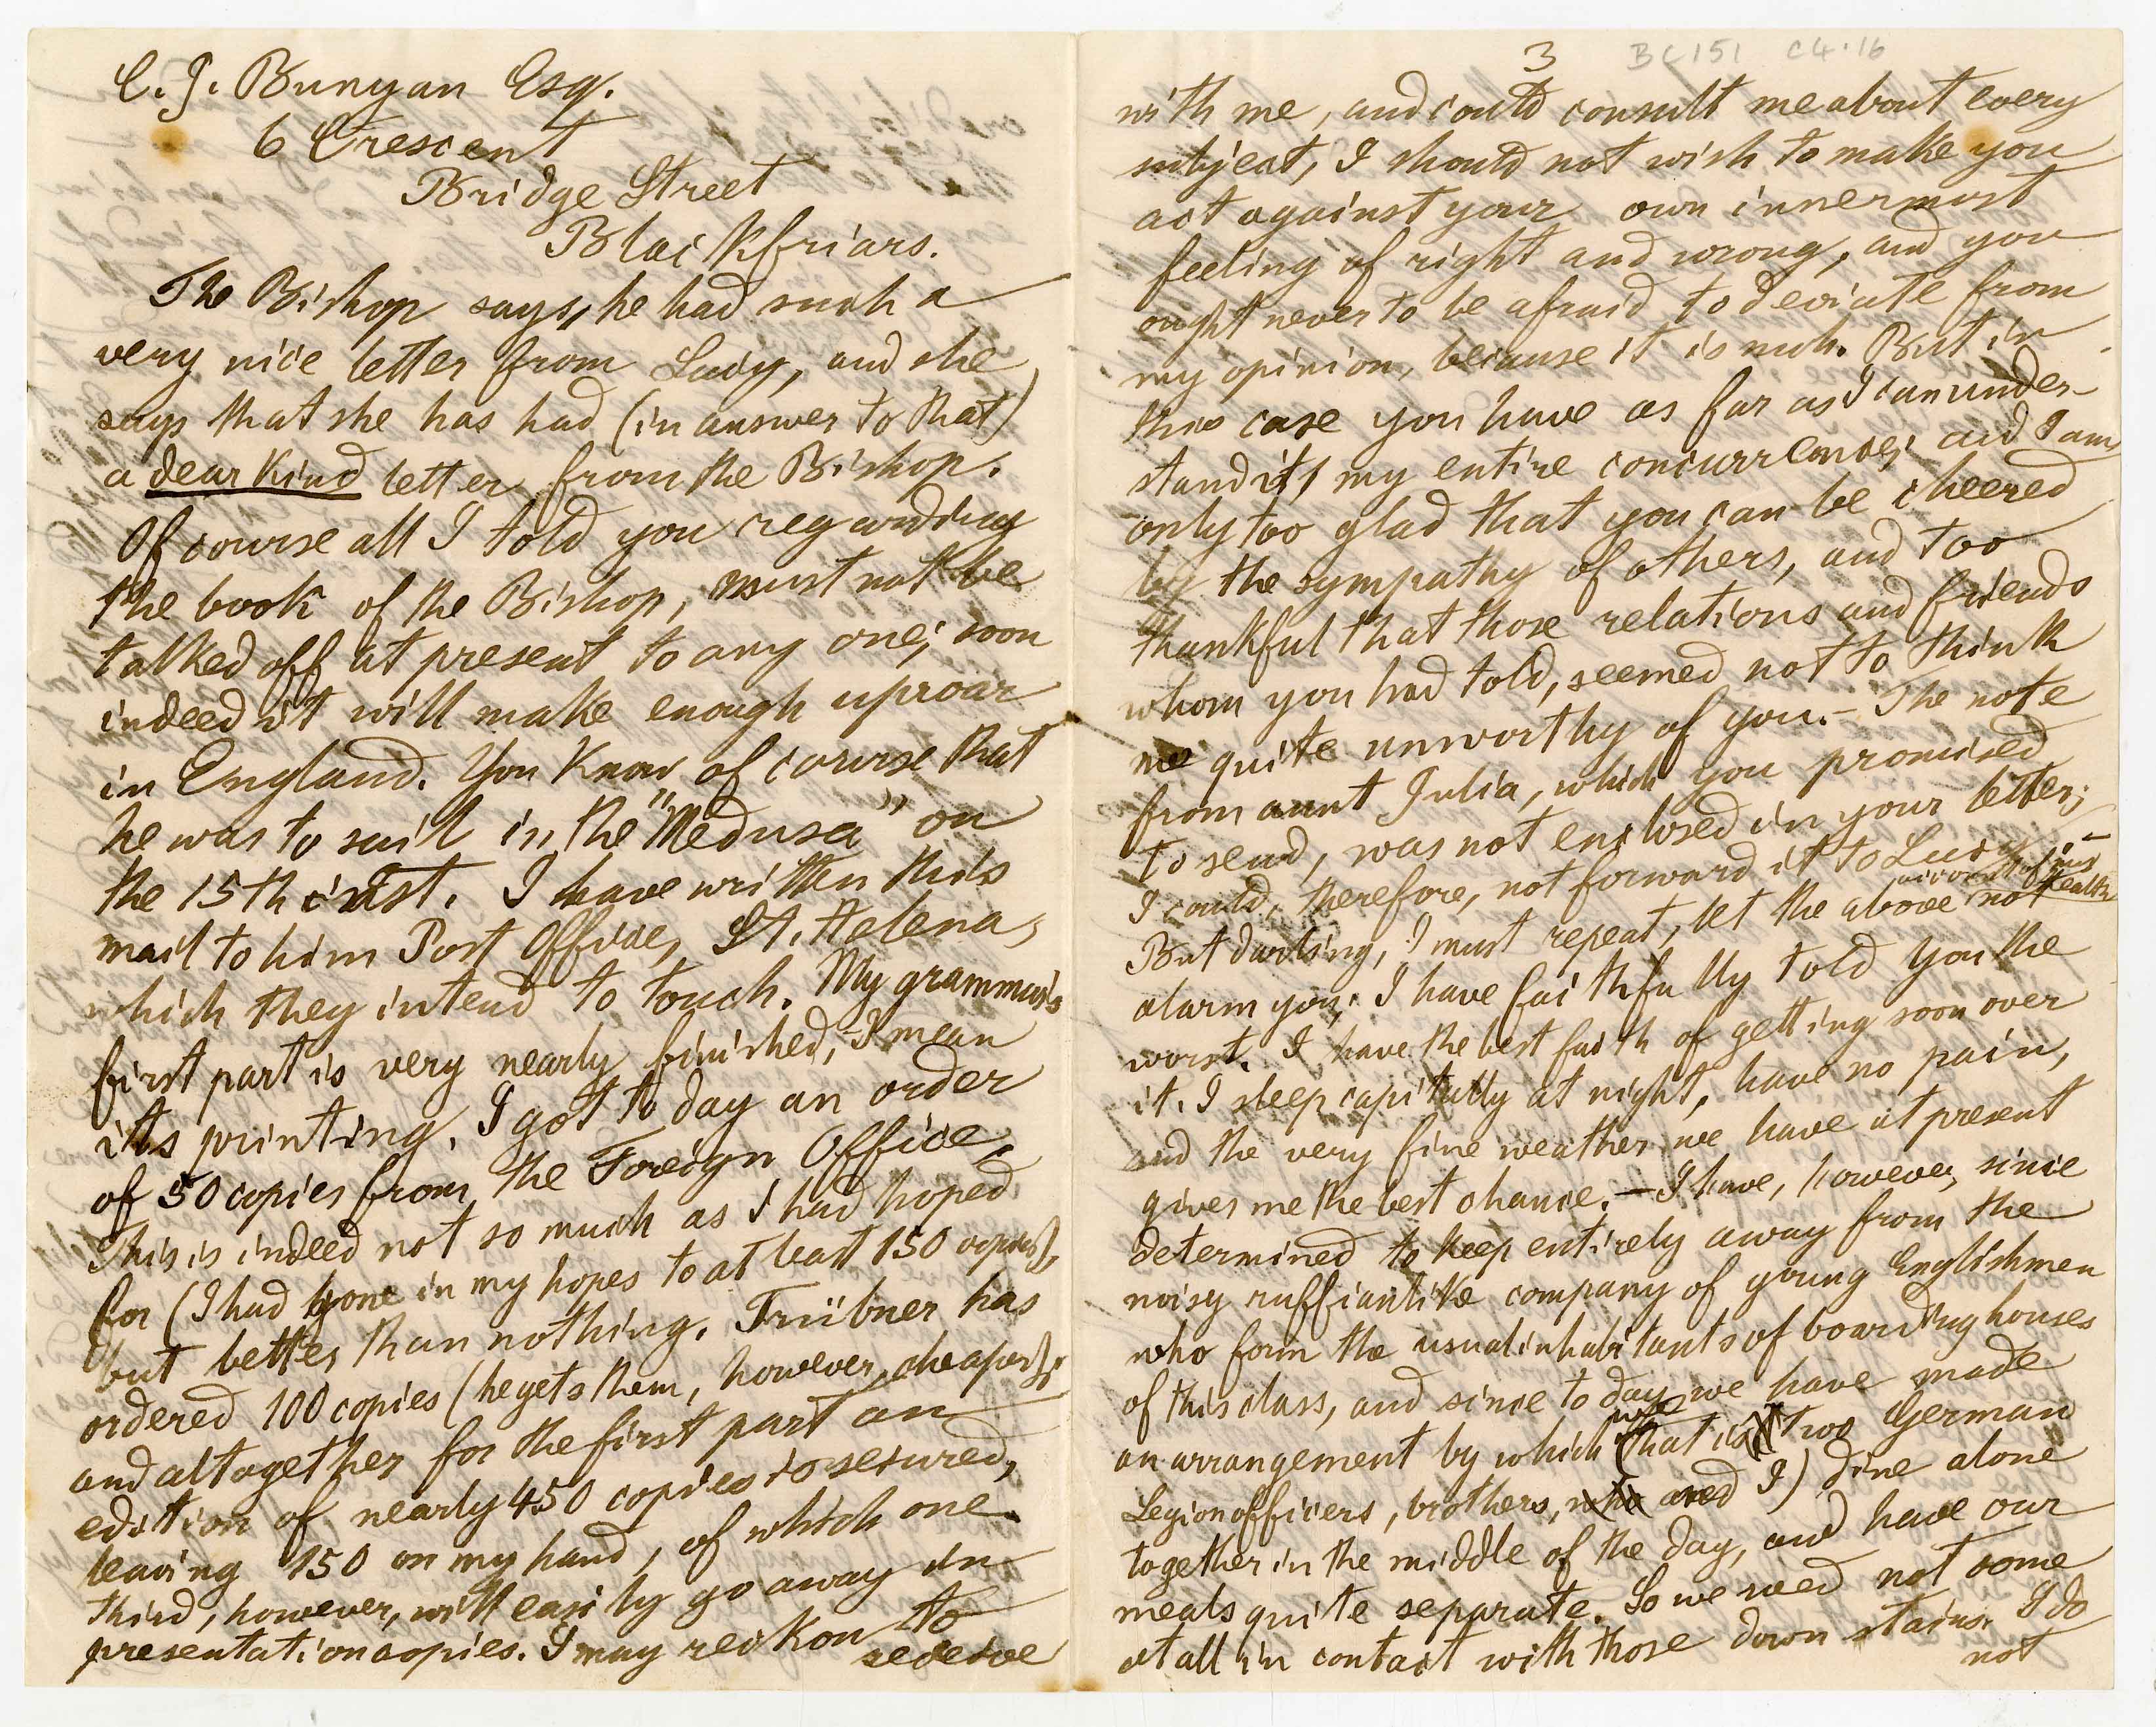 C. J. Bunyan Esq.
6 Crescent
Bridge Street
Blackfriars.
The Bishop says, he had such a
very nice letter from Lucy, and she
says that she has had (in answer to that)
a dear kind letter from the Bishop.
Of course all I told you regarding
the book of the Bishop, must not be
talked off at present to any one; soon
indeed it will make enough uproar
in England. You know of course that
he was to sail in the "Medusa" on
the 15th inst. I have written this
mail to him Post Office, St. Helena,
which they intend to touch. My grammar's
first part is very nearly finished, I mean
its printing. I got to day an order
of 50 copies from the Foreign Office,
This is indeed not so much as I had hoped
for (I had gone in my hopes to at least 150 copies),
but better than nothing. Trübner has
ordered 100 copies (he gets them, however, cheaper),
and altogether for the first part an
edition of nearly 450 copies is secured,
leaving 150 on my hand, of which one
third, however, will easily go away in
presentation copies. I may reckon to
receive
3 BC151 C4.16
with me, and could consult me about every
subject, I should not wish to make you
act against your own innermost
feeling of right and wrong, and you
ought never to be afraid to deviate from
my opinion, because it is such. But in
this case you have as far as I can under-
stand it, my entire concurrence; and I am
only too glad that you can be cheered
by the sympathy of others, and too
thankful that those relations and friends
whom you had told, seemed not to think
me quite unworthy of you. - The note
from aunt Julia, which you promised
to send, was not enclosed in your letter;
I could, therefore, not forward it to Lucy -
account of my health
But darling, I must repeat, let the above not
alarm you; I have faithfully told you the
worst. I have the best faith of getting soon over
it. I sleep capitally at night, have no pain,
and the very fine weather we have at present
gives me the best chance. - I have, however, since
determined to keep entirely away from the
noisy ruffianlike company of young Englishmen
who form the usual inhabitants of boardinghouses
of this class, and since to day we have made
an arrangement by which we (that is two German
Legion officers, brothers, and I) dine alone
together in the middle of the day, and have our
meals quite separate. So we need not come
at all in contact with those down stairs. I do
not